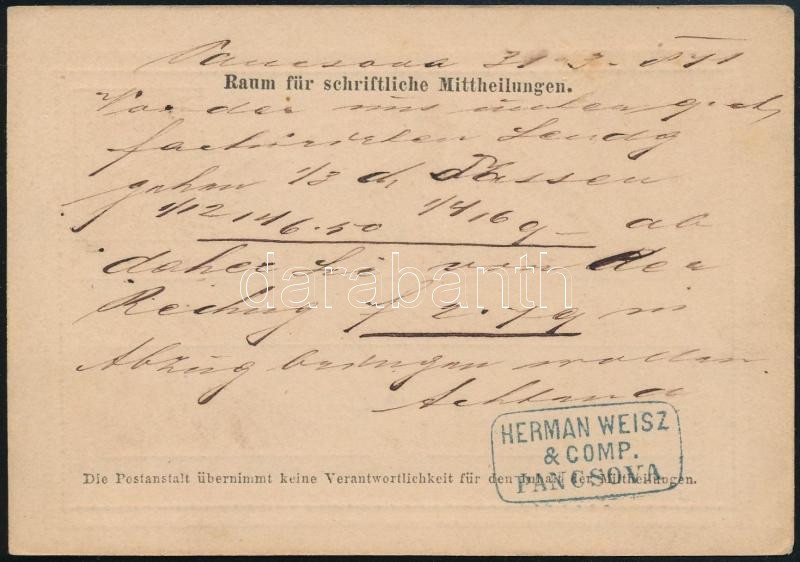 Pancsova 31 3. 871
Raum für schriftliche Mittheilungen.
Von der uns unter
facturirten Sendg
gehen 1/3 d, Tassen
1/12 146.50 1/4 169- ab
daher Sie von der
Rechng f 2.79 in
Abzug bringen wollen.
Achtend
darabanth
HERMAN WEISZ
& COMP.
PANCSOVA
Die Postanstalt übernimmt keine Verantwortlichkeit für den Inhalt der Mittheilungen.